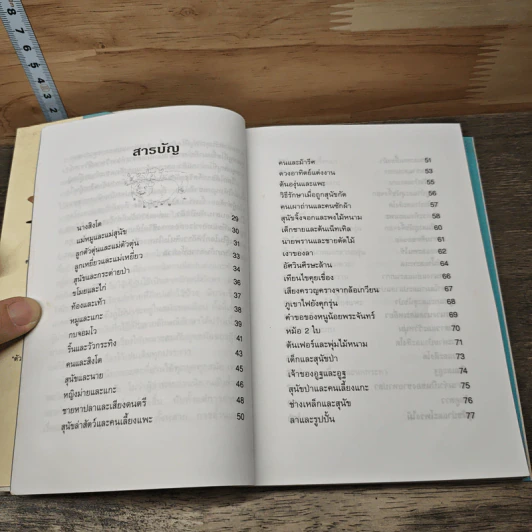 สารบัญ
นางสิงโต 29
แม่หมูและแม่สุนัข 30
ลูกตัวตุ่นและแม่ตัวตุ่น 31
ลูกเหยี่ยวและแม่เหยี่ยว 33
สุนัขและกระต่ายป่า 34
ขโมยและไก่ 36
ท้องและเท้า 37
หมูและแกะ 38
กบจอมโว 39
ริ้นและวัวกระทิง 41
คนและสิงโต 43
สุนัขและนาย 45
หญิงม่ายและแกะ 46
ชายหาปลาและเสียงดนตรี 48
สุนัขล่าสัตว์และคนเลี้ยงแพะ 50
คนและม้ารีด 51
ดวงอาทิตย์แต่งงาน 53
ต้นองุ่นและแพะ 55
วิธีรักษาเมื่อถูกสุนัขกัด 56
คนเผาถ่านและคนซักผ้า 57
สุนัขจิ้งจอกและพงไม้หนาม 58
เด็กชายและต้นเน็ทเทิล 60
นายพรานและชายตัดไม้ 61
เงาของลา 62
อัศวินศีรษะล้าน 64
เทียนไขคุยเขื่อง 66
เสียงครวญครางจากล้อเกวียน 67
ภูเขาไฟยังคุกรุ่น 68
คำขอของหนูน้อยพระจันทร์ 69
หม้อ 2 ใบ 70
ต้นเฟอร์และพุ่มไม้หนาม 71
เด็กและสุนัขป่า 73
เจ้าของอูฐและอูฐ 74
สุนัขป่าและคนเลี้ยงแกะ 75
ช่างเหล็กและสุนัข 76
ลาและรูปปั้น 77